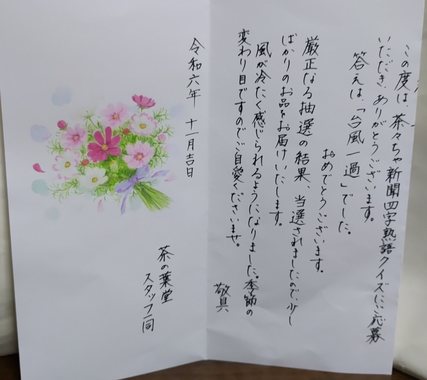 この度は、茶々ちゃ新聞四字熟語クイズにご応募
いただき、ありがとうございます。
答えは、「台風一過」でした。
おめでとうございます。
厳正なる抽選の結果、当選されましたので、少し
ばかりのお品をお届けいたします。
風が冷たく感じられるようになりました。季節の
変わり目ですのでご自愛くださいませ。
敬具
令和六年 十一月吉日
茶の葉堂
スタッフ一同